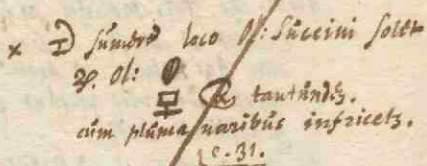 × Sumere loco Ol: Succini solet
Ol:
tantundẽ.
cum pluma naribus infricetz.
c. 31.